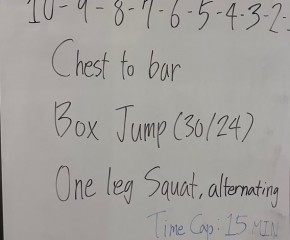 10-9-8-7-6-5-4-3-2-
Chest to bar
Box Jump (30/24)
One leg Squat, alternating
Time Cap: 15 MIN